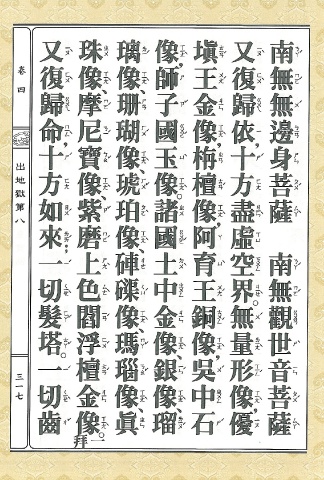 南無無邊身菩薩　南無觀世音菩薩
又復歸依，十方盡虛空界。無量形像，優
塡王金像，栴檀像，阿育王銅像，吳中石
像，師子國玉像。諸國土中金像、銀像、瑠
璃像、珊瑚像、琥珀像、硨磲像、瑪瑙像、眞
珠像、摩尼寶像、紫磨上色閻浮檀金像。一拜
又復歸命，十方如來，一切髮塔。一切齒
卷四
出地獄第八
三一七